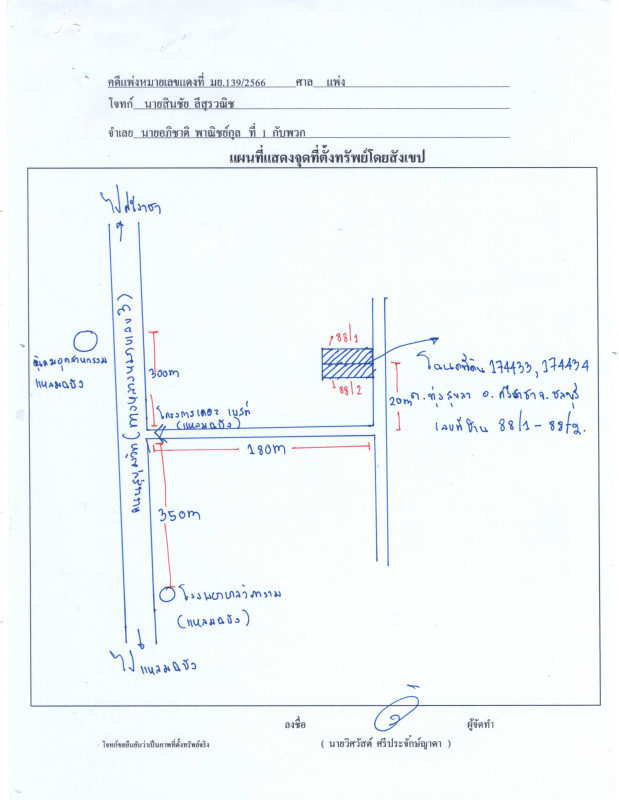 คดีแพ่งหมายเลขแดงที่ มย.139/2566 ศาล แพ่ง
โจทก์ นายสินชัย ลีสุรวณิช
จำเลย นายอภิชาติ พาณิชย์กุล ที่ 1 กับพวก
แผนที่แสดงจุดที่ตั้งทรัพย์โดยสังเขป
ไปศรีราชา
นิคมอุตสาหกรรม
แหลมฉบัง
300m
โครงการเดอะ
(แหลมฉบัง)
180m
350m
โรงพยาบาลวิภาราม
(แหลมฉบัง)
ไปแหลมฉบัง
88/1
88/2
20m
โฉนดที่ดิน 174433, 174434
ต.ทุ่งสุขลา อ.ศรีราชา จ.ชลบุรี
เลขที่บ้าน 88/1 - 88/2.
ลงชื่อ ผู้จัดทำ
โจทก์ขอยืนยันว่าเป็นภาพที่ตั้งทรัพย์จริง
( นายวิศวัสต์ ศรีประจักษ์ญาดา )